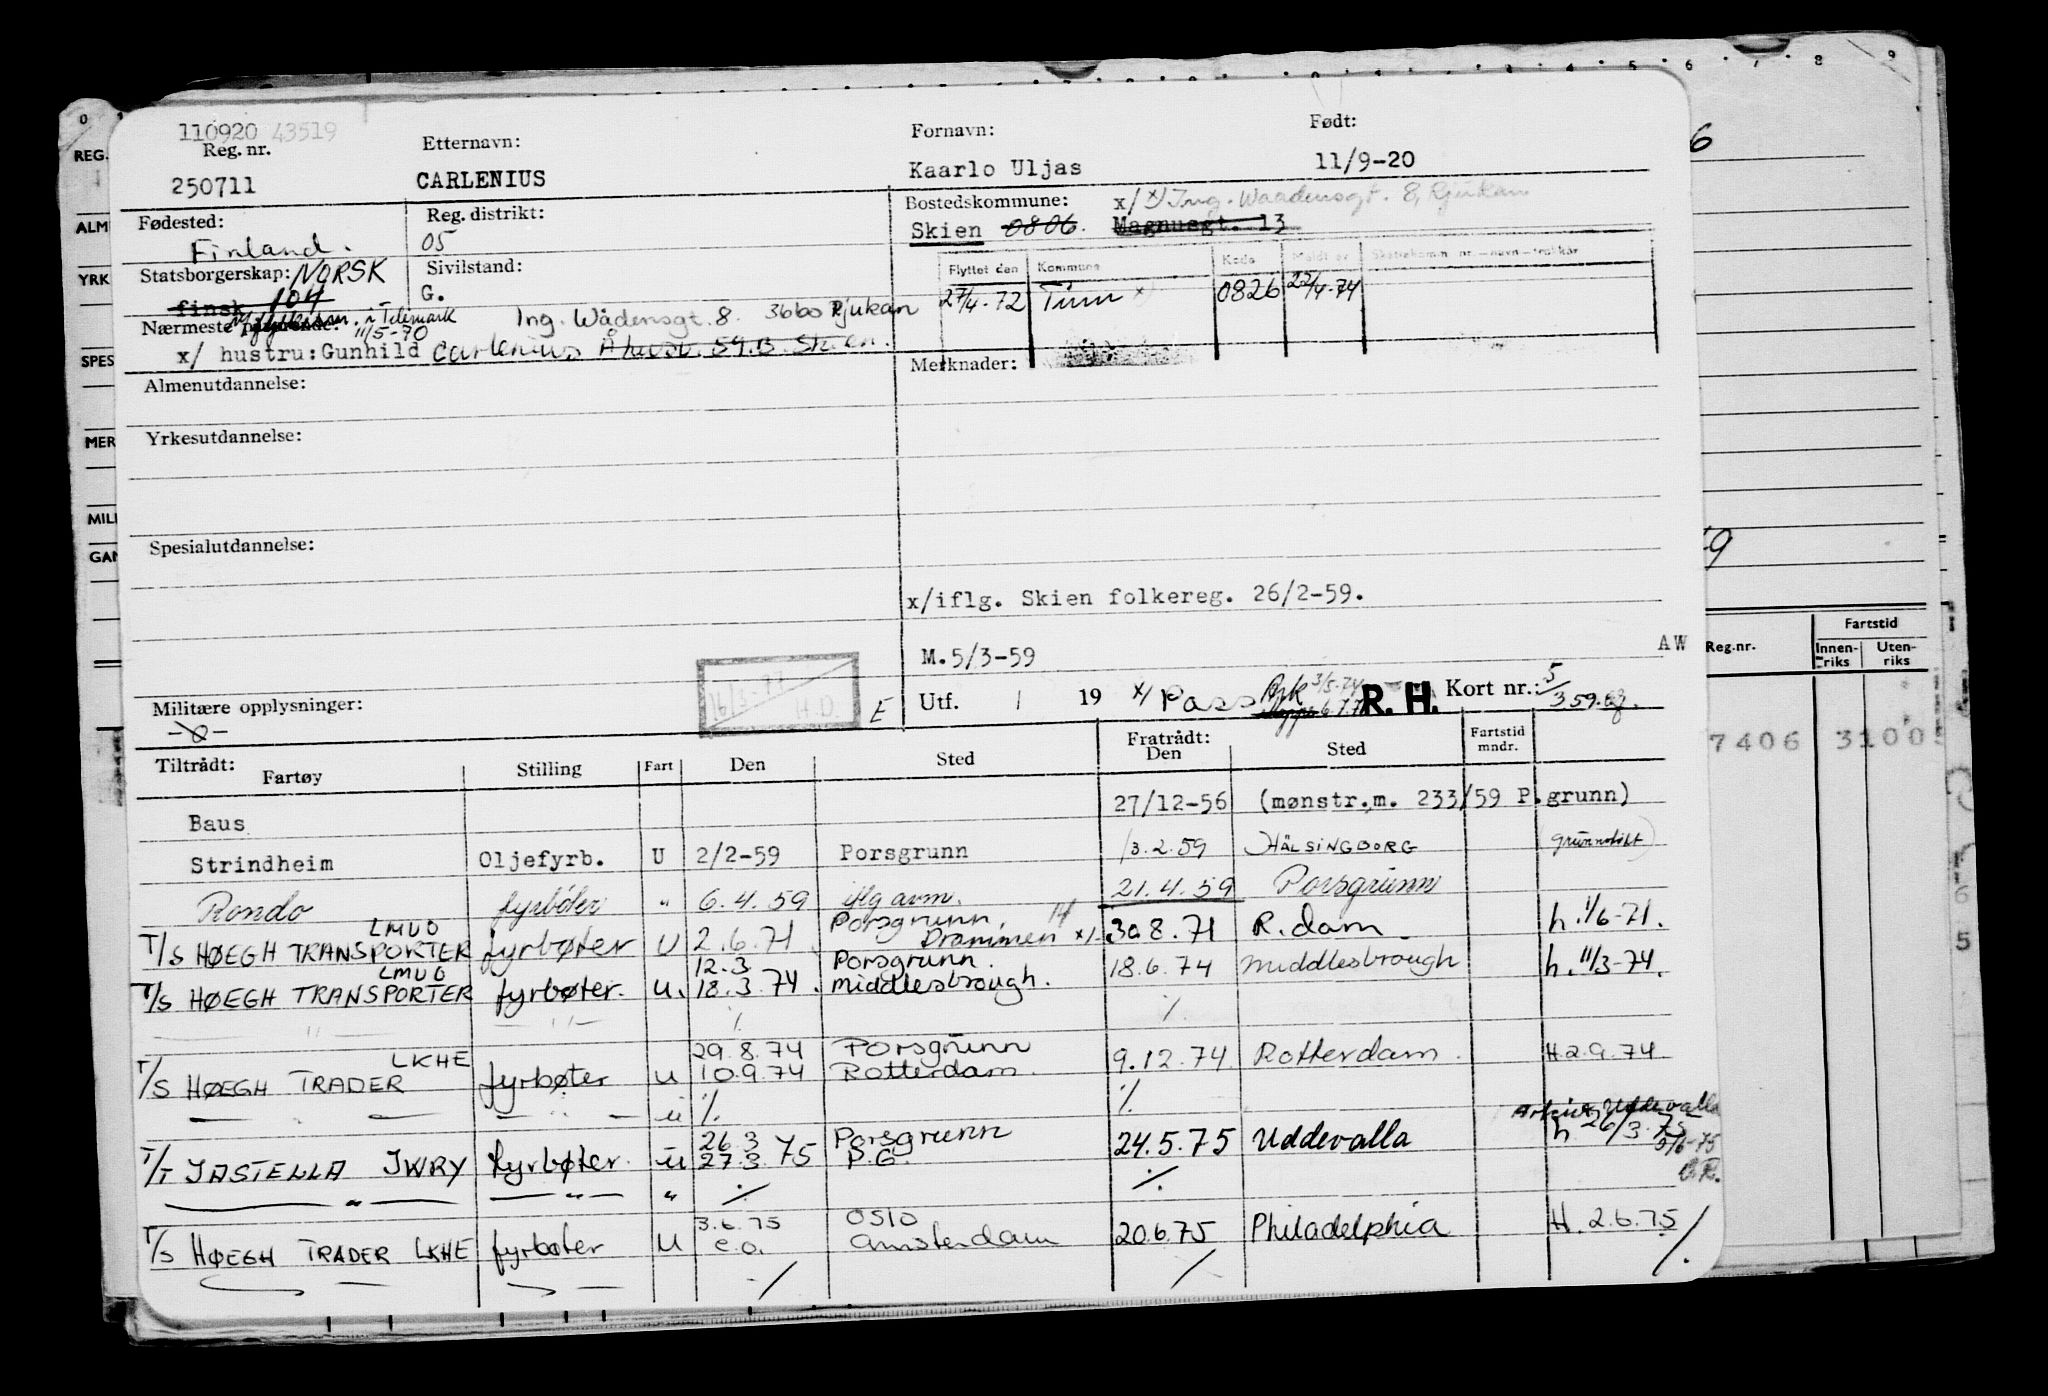 110920 43519
Reg. nr.
250711
Etternavn:
CARLENIUS
Fornavn:
Kaarlo Uljas
Født:
11/9-20
Fødested:
Finland.
Reg. distrikt:
05
Bostedskommune:
Skien 0806. Magnusgt. 13
x/ x) Ing. Waadensgt. 8, Rjukan
Statsborgerskap: NORSK
finsk 104
Sivilstand:
G.
Flyttet den Kommune Kode Meldt av
27/4-72 Tinn x) 0826 22/4-74
Nærmeste pårørende: i Telemark
11/5-70
Ing. Wådensgt. 8. 3660 Rjukan
x/ hustru: Gunhild Carlenius 59.B. Skien.
Almenutdannelse:
Merknader:
Yrkesutdannelse:
Spesialutdannelse:
x/iflg. Skien folkereg. 26/2-59.
M.5/3-59
AW
Militære opplysninger:
16/3-77
H.D.
E
Utf. 1 19 x/ Pass 3/5-74 6.7.7 R.H. Kort nr.: 5/3 59.
Tiltrådt:
Fartøy Stilling Fart Den Sted Fratrådt: Den Sted Fartstid mndr.
Baus 27/12-56 (mønstr.m. 233/59 P.grunn)
Strindheim Oljefyrb. U 2/2-59 Porsgrunn 13.2.59 HÄLSINGBORG
Rondo fyrbøter " 6.4.59 iflg avm. 21.4.59 Porsgrunn
LMUO Porsgrunn
T/S HØEGH TRANSPORTER fyrbøter U 2.6.71 Drammen x/ 30.8.71 R.dam h. 1/6-71.
LMUO 12.3 Porsgrunn
T/S HØEGH TRANSPORTER fyrbøter. U. 18.3.74. Middlesbrough. 18.6.74 Middlesbrough h. 11/3-74.
— " — — " — ٪ ٪
LKHE 29.8.74 Porsgrunn
T/S HØEGH TRADER fyrbøter U 10.9.74 Rotterdam. 9.12.74 Rotterdam. H 2.9.74
— — — " — u ٪ ٪
Uddevalla
26.3 Porsgrunn h 26/3.75
T/T JASTELLA JWRY fyrbøter. u 27.3.75 P.G. 24.5.75 Uddevalla
— " — — " — " ٪ ٪
3.6.75 OSLO
T/S HØEGH TRADER LKHE fyrbøter U e.o. Amsterdam 20.6.75 Philadelphia H. 2.6.75
REG.
ALM
YRK
SPES
MER
MILI
GAN
Reg.nr.
Fartstid
Innen-riks Uten-riks
7406 3100